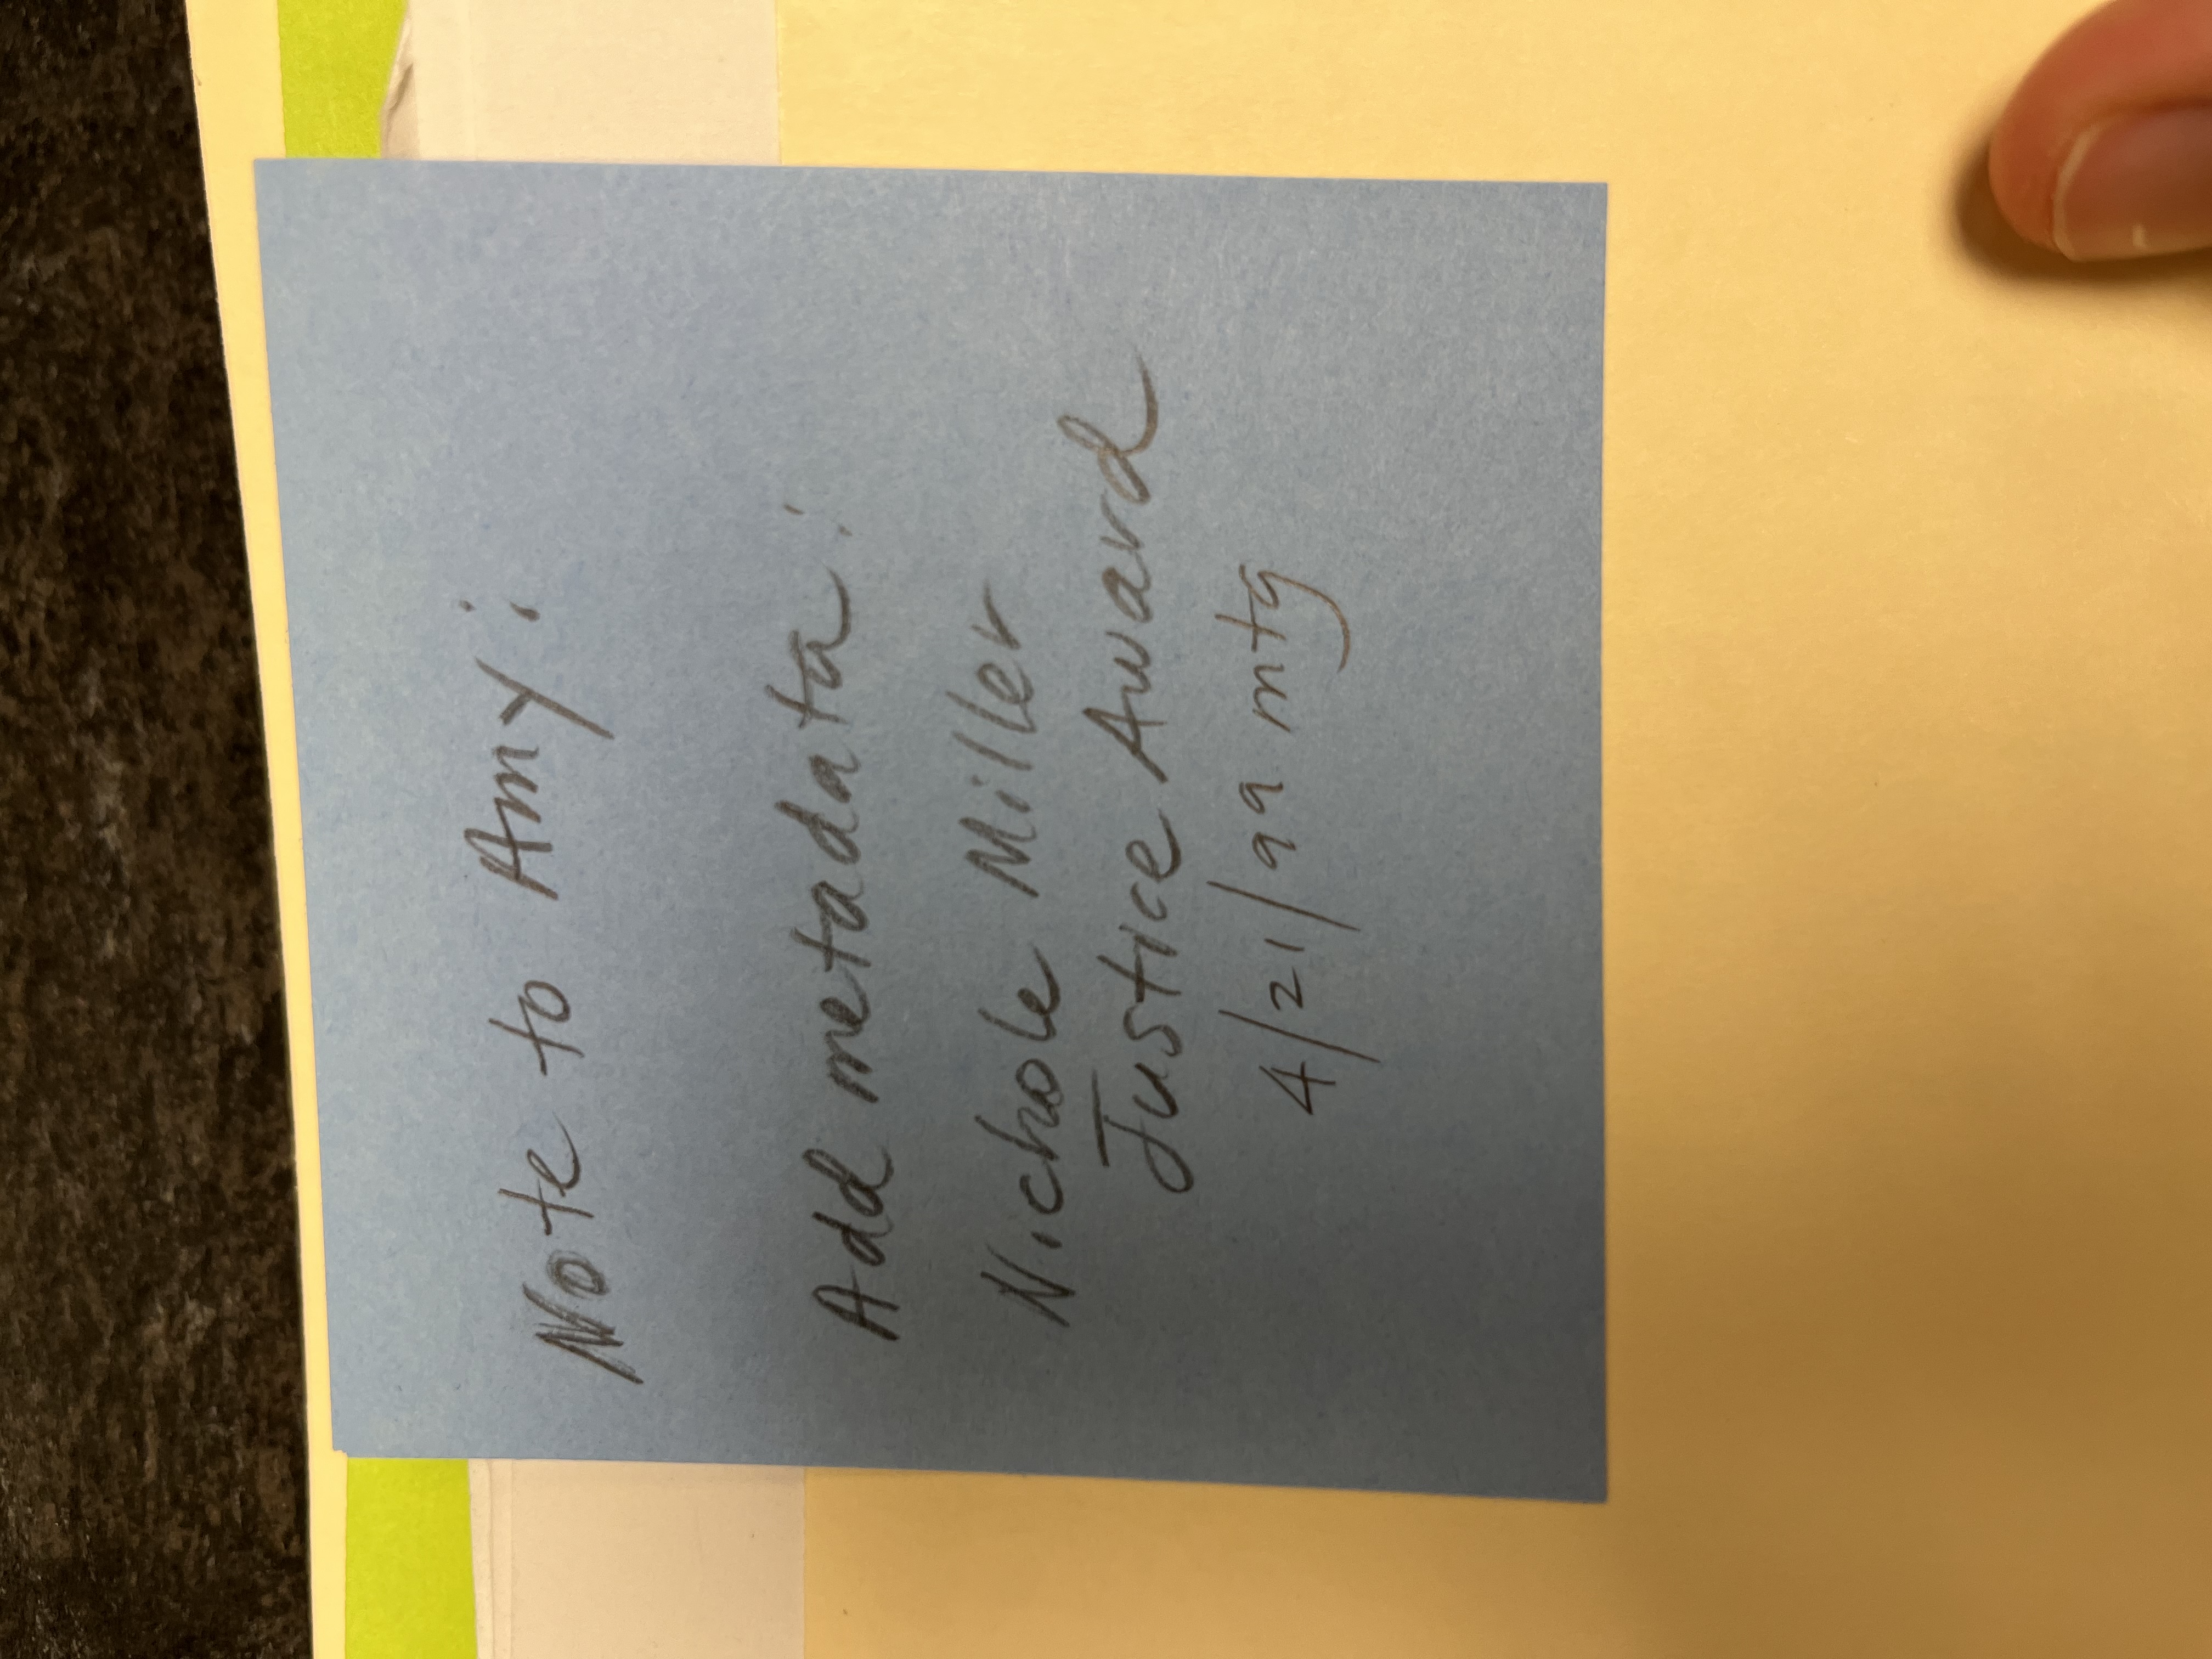 Note to Amy:
Add metadata:
Nichole Miller
Justice Award
4/21/99 mtg